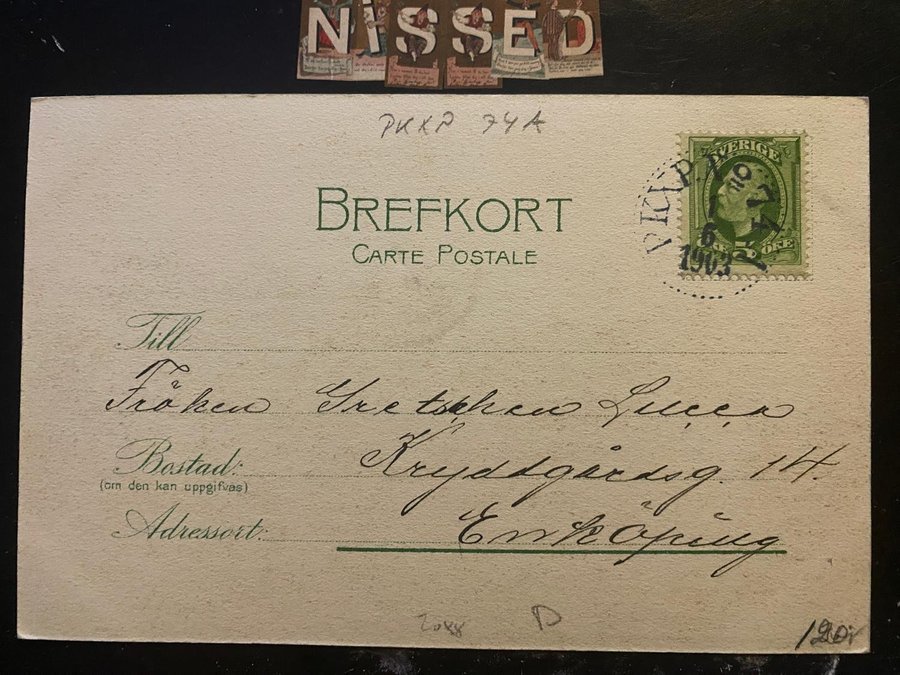 NiSSED
PKXP 74A
SVERIGE
PKXP. No 74A
1
6
1903
ÖRE
BREFKORT
CARTE POSTALE
Till
Fröken Gretchen Lucca
Bostad: Kryddgårdsg. 14.
(om den kan uppgifvas)
Adressort: Enköping
2088 D